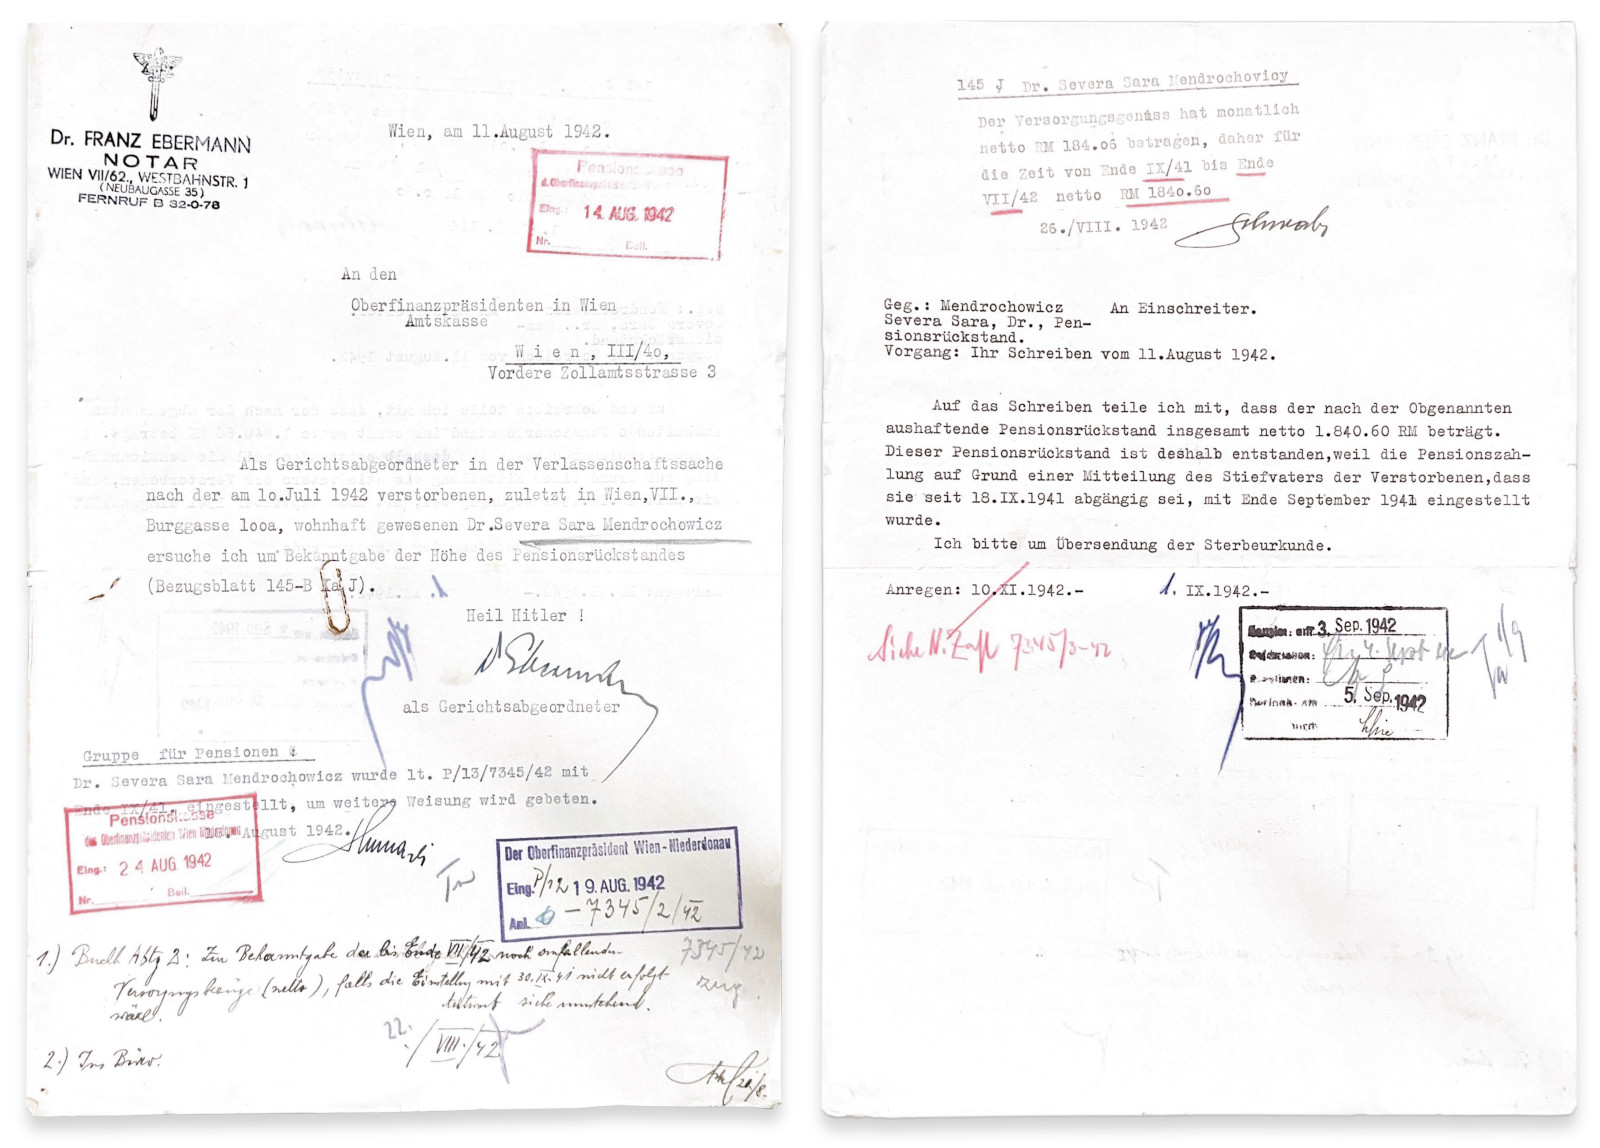 Dr. FRANZ EBERMANN
NOTAR
WIEN VII/62., WESTBAHNSTR. 1
(NEUBAUGASSE 35)
FERNRUF B 32-0-78
Wien, am 11.August 1942.
Pensionskasse
d. Oberfinanzpräsidenten
Eing.: 14. AUG. 1942
Nr. Beil.
An den
Oberfinanzpräsidenten in Wien
Amtskasse
W i e n , III/4o,
Vordere Zollamtsstrasse 3
Als Gerichtsabgeordneter in der Verlassenschaftssache
nach der am 1o.Juli 1942 verstorbenen, zuletzt in Wien,VII.,
Burggasse 1ooa, wohnhaft gewesenen Dr.Severa Sara Mendrochowicz
ersuche ich um Bekanntgabe der Höhe des Pensionsrückstandes
(Bezugsblatt 145-B Ka J).
Heil Hitler !
als Gerichtsabgeordneter
Gruppe für Pensionen
Dr. Severa Sara Mendrochowicz wurde lt. P/13/7345/42 mit
Ende IX/41. eingestellt, um weitere Weisung wird gebeten.
August 1942.
Pensionskasse
des Oberfinanzpräsidenten Wien Niederdonau
Eing.: 24 AUG. 1942
Nr. Beil.
Der Oberfinanzpräsident Wien-Niederdonau
Eing. P/12 19. AUG. 1942
Anl. – 7345/2/42
1.) Buchh Abtg B: Zur Bekanntgabe der bis Ende VII/42 noch anfallenden
Versorgungsbezüge (netto), falls die Einstellung mit 30.IX.41 nicht erfolgt
wäre. Antwort siehe umstehend.
7345/42
zug.
22./VIII./42
2.) Ins Büro.
145 J Dr. Severa Sara Mendrochovicy
Der Versorgungsgenuss hat monatlich
netto RM 184.06 betragen, daher für
die Zeit von Ende IX/41 bis Ende
VII/42 netto RM 1840.60
26./VIII. 1942
Geg.: Mendrochowicz An Einschreiter.
Severa Sara, Dr., Pen-
sionsrückstand.
Vorgang: Ihr Schreiben vom 11.August 1942.
Auf das Schreiben teile ich mit, dass der nach der Obgenannten
aushaftende Pensionsrückstand insgesamt netto 1.840.60 RM beträgt.
Dieser Pensionsrückstand ist deshalb entstanden,weil die Pensionszah-
lung auf Grund einer Mitteilung des Stiefvaters der Verstorbenen,dass
sie seit 18.IX.1941 abgängig sei, mit Ende September 1941 eingestellt
wurde.
Ich bitte um Übersendung der Sterbeurkunde.
Anregen: 10.XI.1942.- 1. IX.1942.-
Siehe N. Zahl 7345/3-42
3. Sep. 1942
5. Sep. 1942